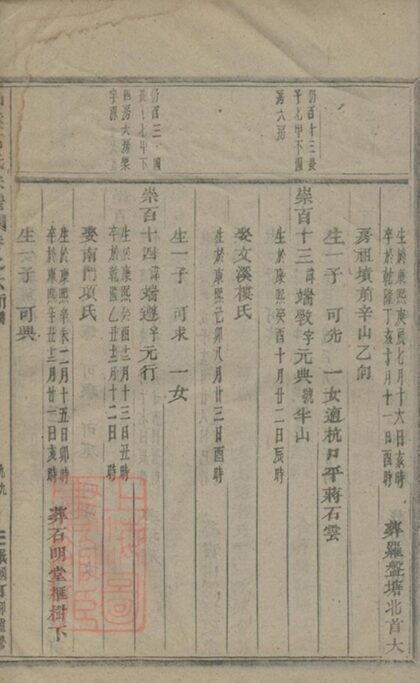 仍百十三長
子七甲下四
房六房
仍百三 四
長七甲下
四房六房梁
字源
生於康熙庚辰七月十六日亥時
卒於乾隆丁亥十月十一日酉時
葬羅盤塘北首大
房祖墳前辛山乙向
生一子 可先 一女適杭口平蔣石雲
崇百十三諱端敎字元典號半山
生於康熙癸酉十月廿二日辰時
娶文溪樓氏
生於康熙己卯八月廿三日酉時
生一子 可求 一女
崇百十四諱端遵字元行
生於康熙癸酉十二月十三日丑時
卒於乾隆乙丑十二月十二日 時
娶南門項氏
生於康熙辛未二月十五日卯時
卒於康熙辛丑十二月廿一日亥時
葬石明堂框樹下
生一子 可典